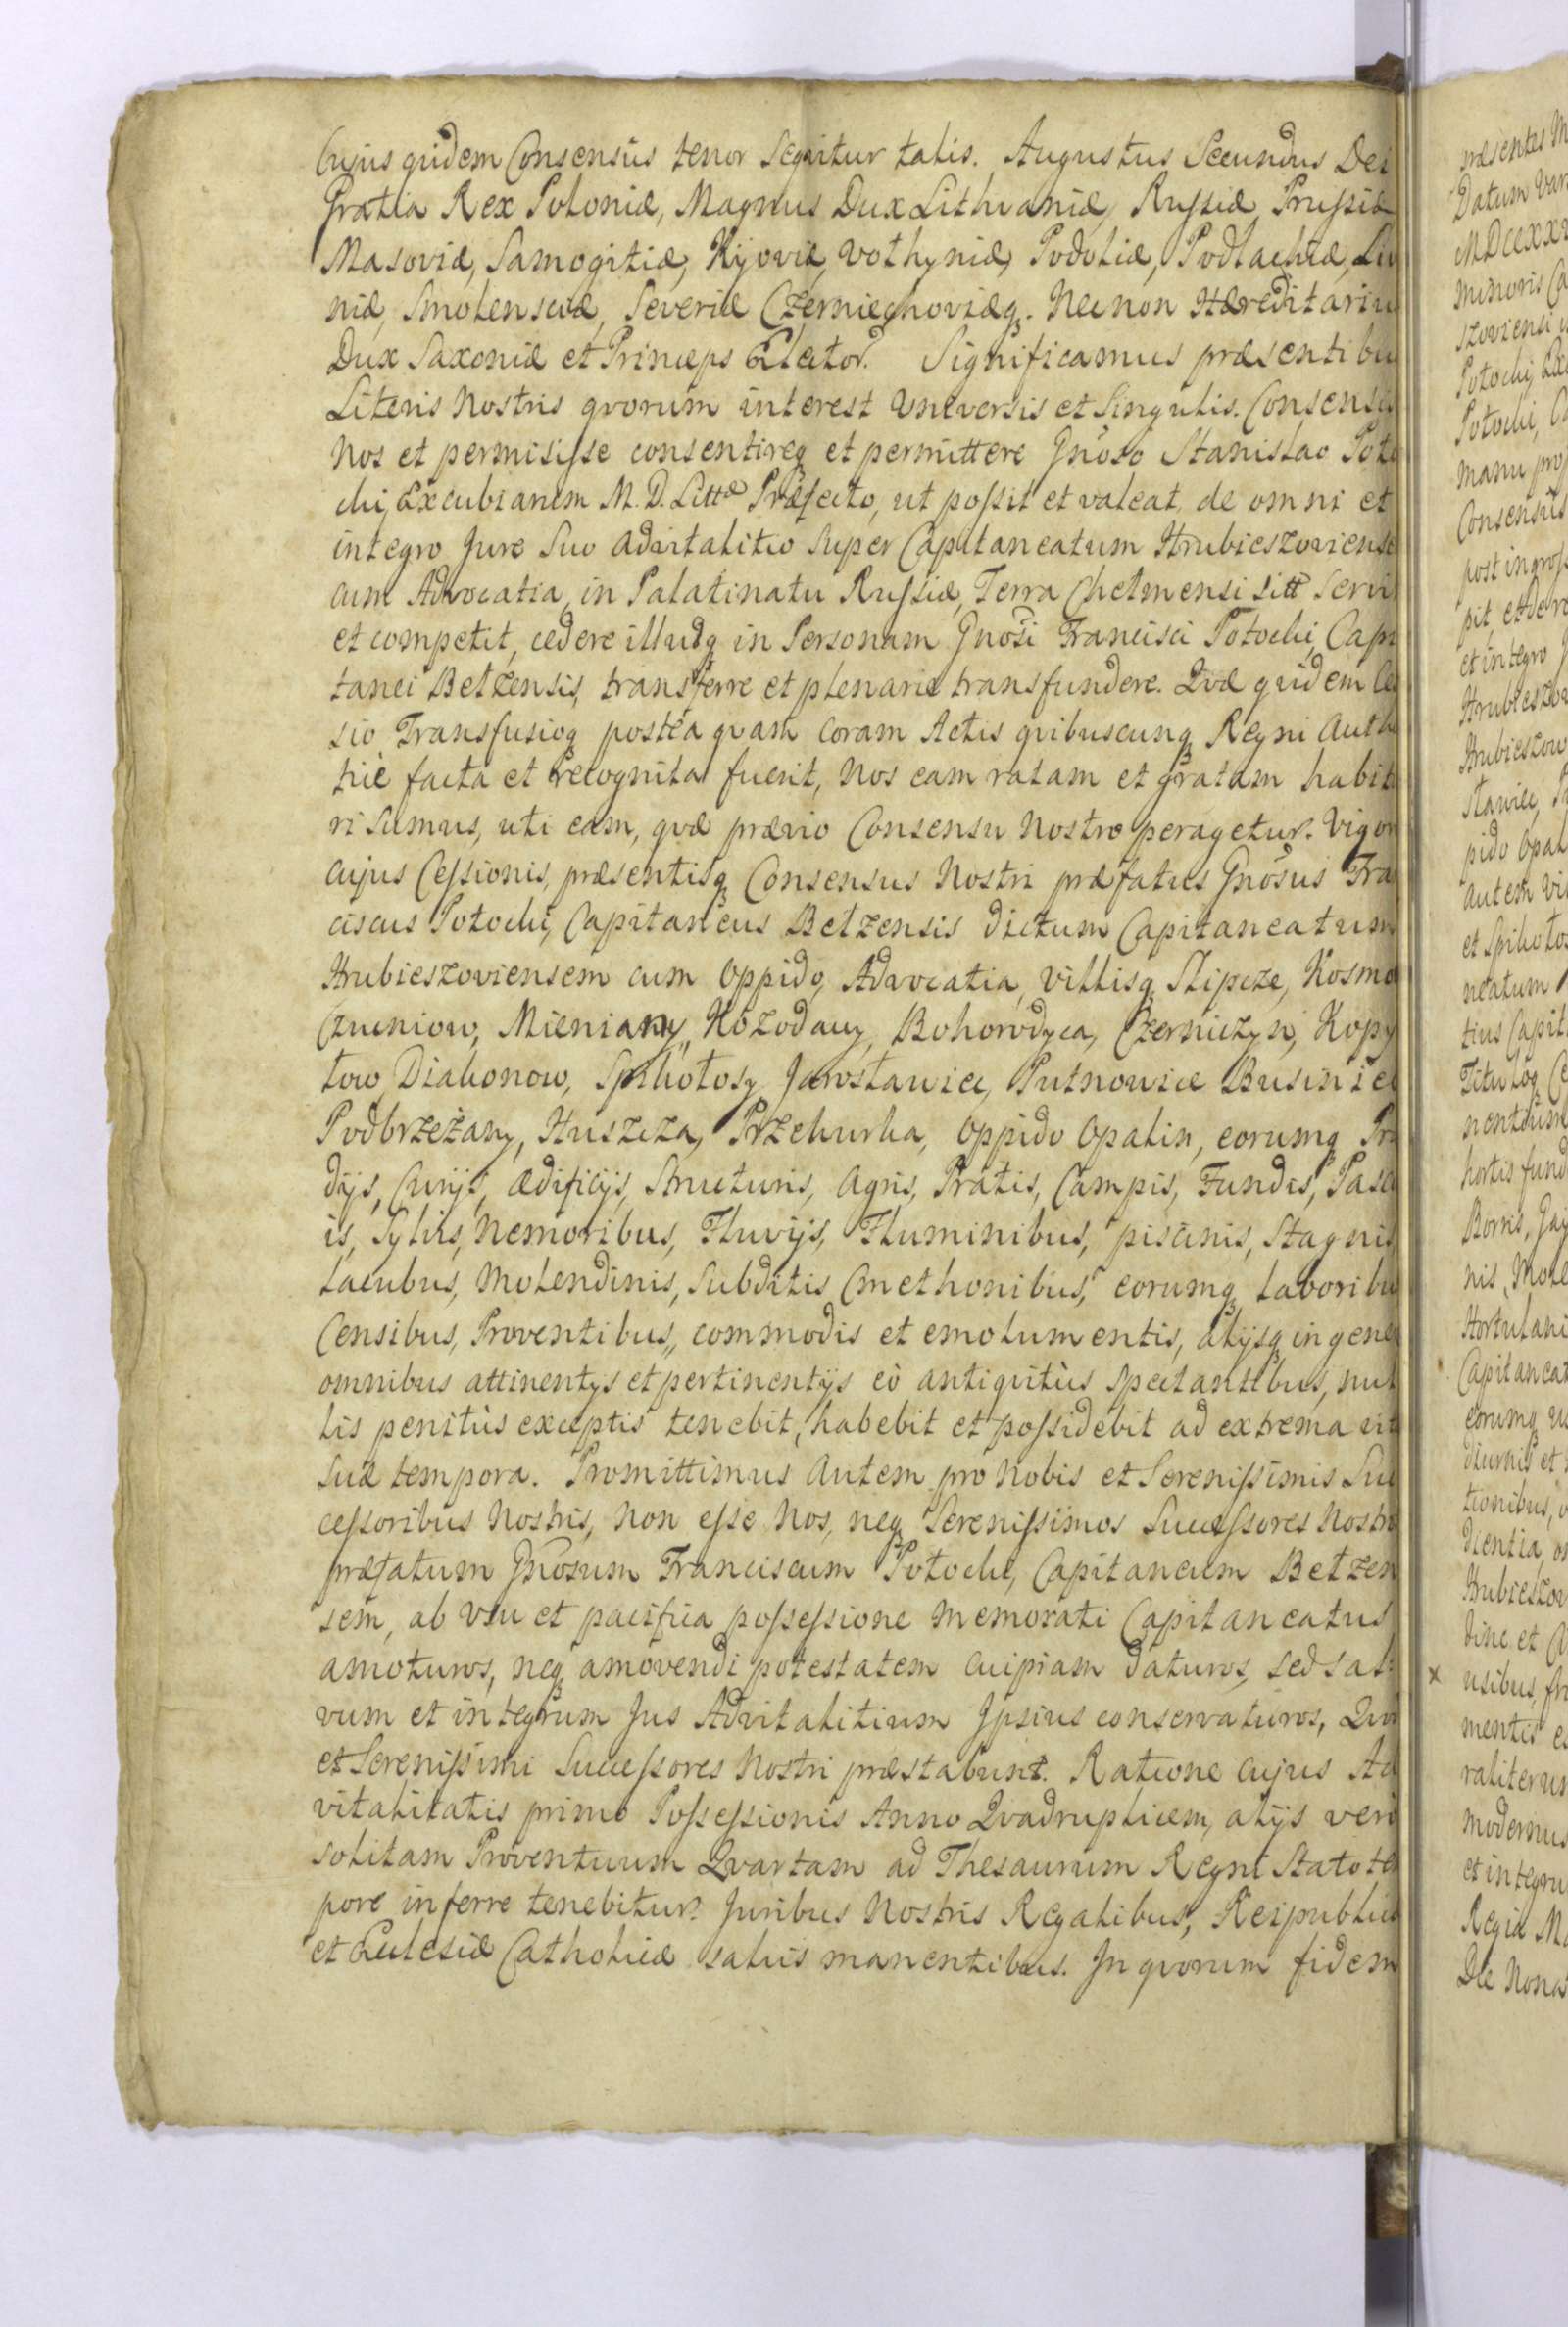 Cujus quidem Consensus tenor sequitur talis. Augustus Secundus Dei
Gratia Rex Poloniæ, Magnus Dux Lithvaniæ, Russiæ, Prussiæ
Masoviæ, Samogitiæ, Kijoviæ, Volhyniæ, Podoliæ, Podlachiæ, Liv
niæ, Smolensciæ, Severiæ Czerniechoviæq. Nec non Hæreditariu
Dux Saxoniæ et Princeps Elector. Significamus præsentibu
Literis Nostris qvorum interest Universis et Singulis. Consensis
Nos et permisisse consentireq et permittere Gnoso Stanislao Poto
cki, Excubiarum M. D. Littæ Præfecto, ut possit et valeat, de omni et
integro Jure Suo advitalitio Super Capitaneatum Hrubieszoviense
cum Advocatia, in Palatinatu Russiæ, Terra Chelmensi sitt Servi
et competit, cedere illudq in Personam Gnosi Francisci Potocki, Capi
tanei Belzensis, transferre et plenarie transfundere. Qvæ quidem Ces
sio, Transfusioq posteaqvam coram Actis qvibuscunq Regni Authe
ticè facta et recognita fuerit, Nos eam ratam et gratam habitu
ri sumus, uti eam, qvæ prævio Consensu Nostro peragetur. Vigor
cujus Cessionis, præsentisq Consensus Nostri præfatus Gnosus Fra
ciscus Potocki, Capitaneus Belzensis dictum Capitaneatum
Hrubieszoviensem cum Oppido, Advocatia, Villisq Slipcze, Kosmo
Czueniow, Mieniany, Kozodawy, Bohorodyca, Czerniczyn, Kopy
tow, Diakonow, Spikołosy, Jarosławice, Putnowice Businice
Podbrzeżany, Huszcza, Przekurka, Oppido Opalin, eorumq Præ
dijs, Curijs, Ædificijs, Structuris, Agris, Pratis, Campis, Fundis, Pascu
is, Sylvis, Nemoribus, Fluvijs, Fluminibus, piscinis, Stagnis
Lacubus, Molendinis, Subditis Cmethonibus, eorumq laboribu
Censibus, Proventibus, commodis et emolumentis, alijsq in gene
omnibus attinentijs et pertinentijs eò antiqvitùs spectantibus, nul
lis penitùs exceptis tenebit, habebit et possidebit ad extrema vit
suæ tempora. Promittimus autem pro Nobis et Serenissimis Suc
cessoribus Nostris, Non esse Nos, neq Serenissimos Successores Nostro
præfatum Gnosum Franciscum Potocki, Capitaneum Belzen
sem, ab usu et pacifica possessione memorati Capitaneatus
amoturos, neq amovendi potestatem cuipiam daturos, sed sal
vum et integrum Jus Advitalitium Ipsius conservaturos, Qvo
et Serenissimi Successores Nostri præstabunt. Ratione cujus Ad
vitalitatis primo Possessionis Anno Qvadruplicem, alijs verò
solitam Proventuum Qvartam ad Thesaurum Regni Stato te
pore inferre tenebitur. Juribus Nostris Regalibus, Reipublicæ
et Ecclesiæ Catholicæ salvis manentibus. In qvorum fidem
præsentes
Datum
MDCCXX
minoris
Potocki
Potocki,
manu
Consensus
post
et integro
Hrubieszow
autem
neatum
hortis
Capitaneat
eorumq
tionibus,
Hrubieszov
dine et
usibus,
modernus
et integru
Die Nona